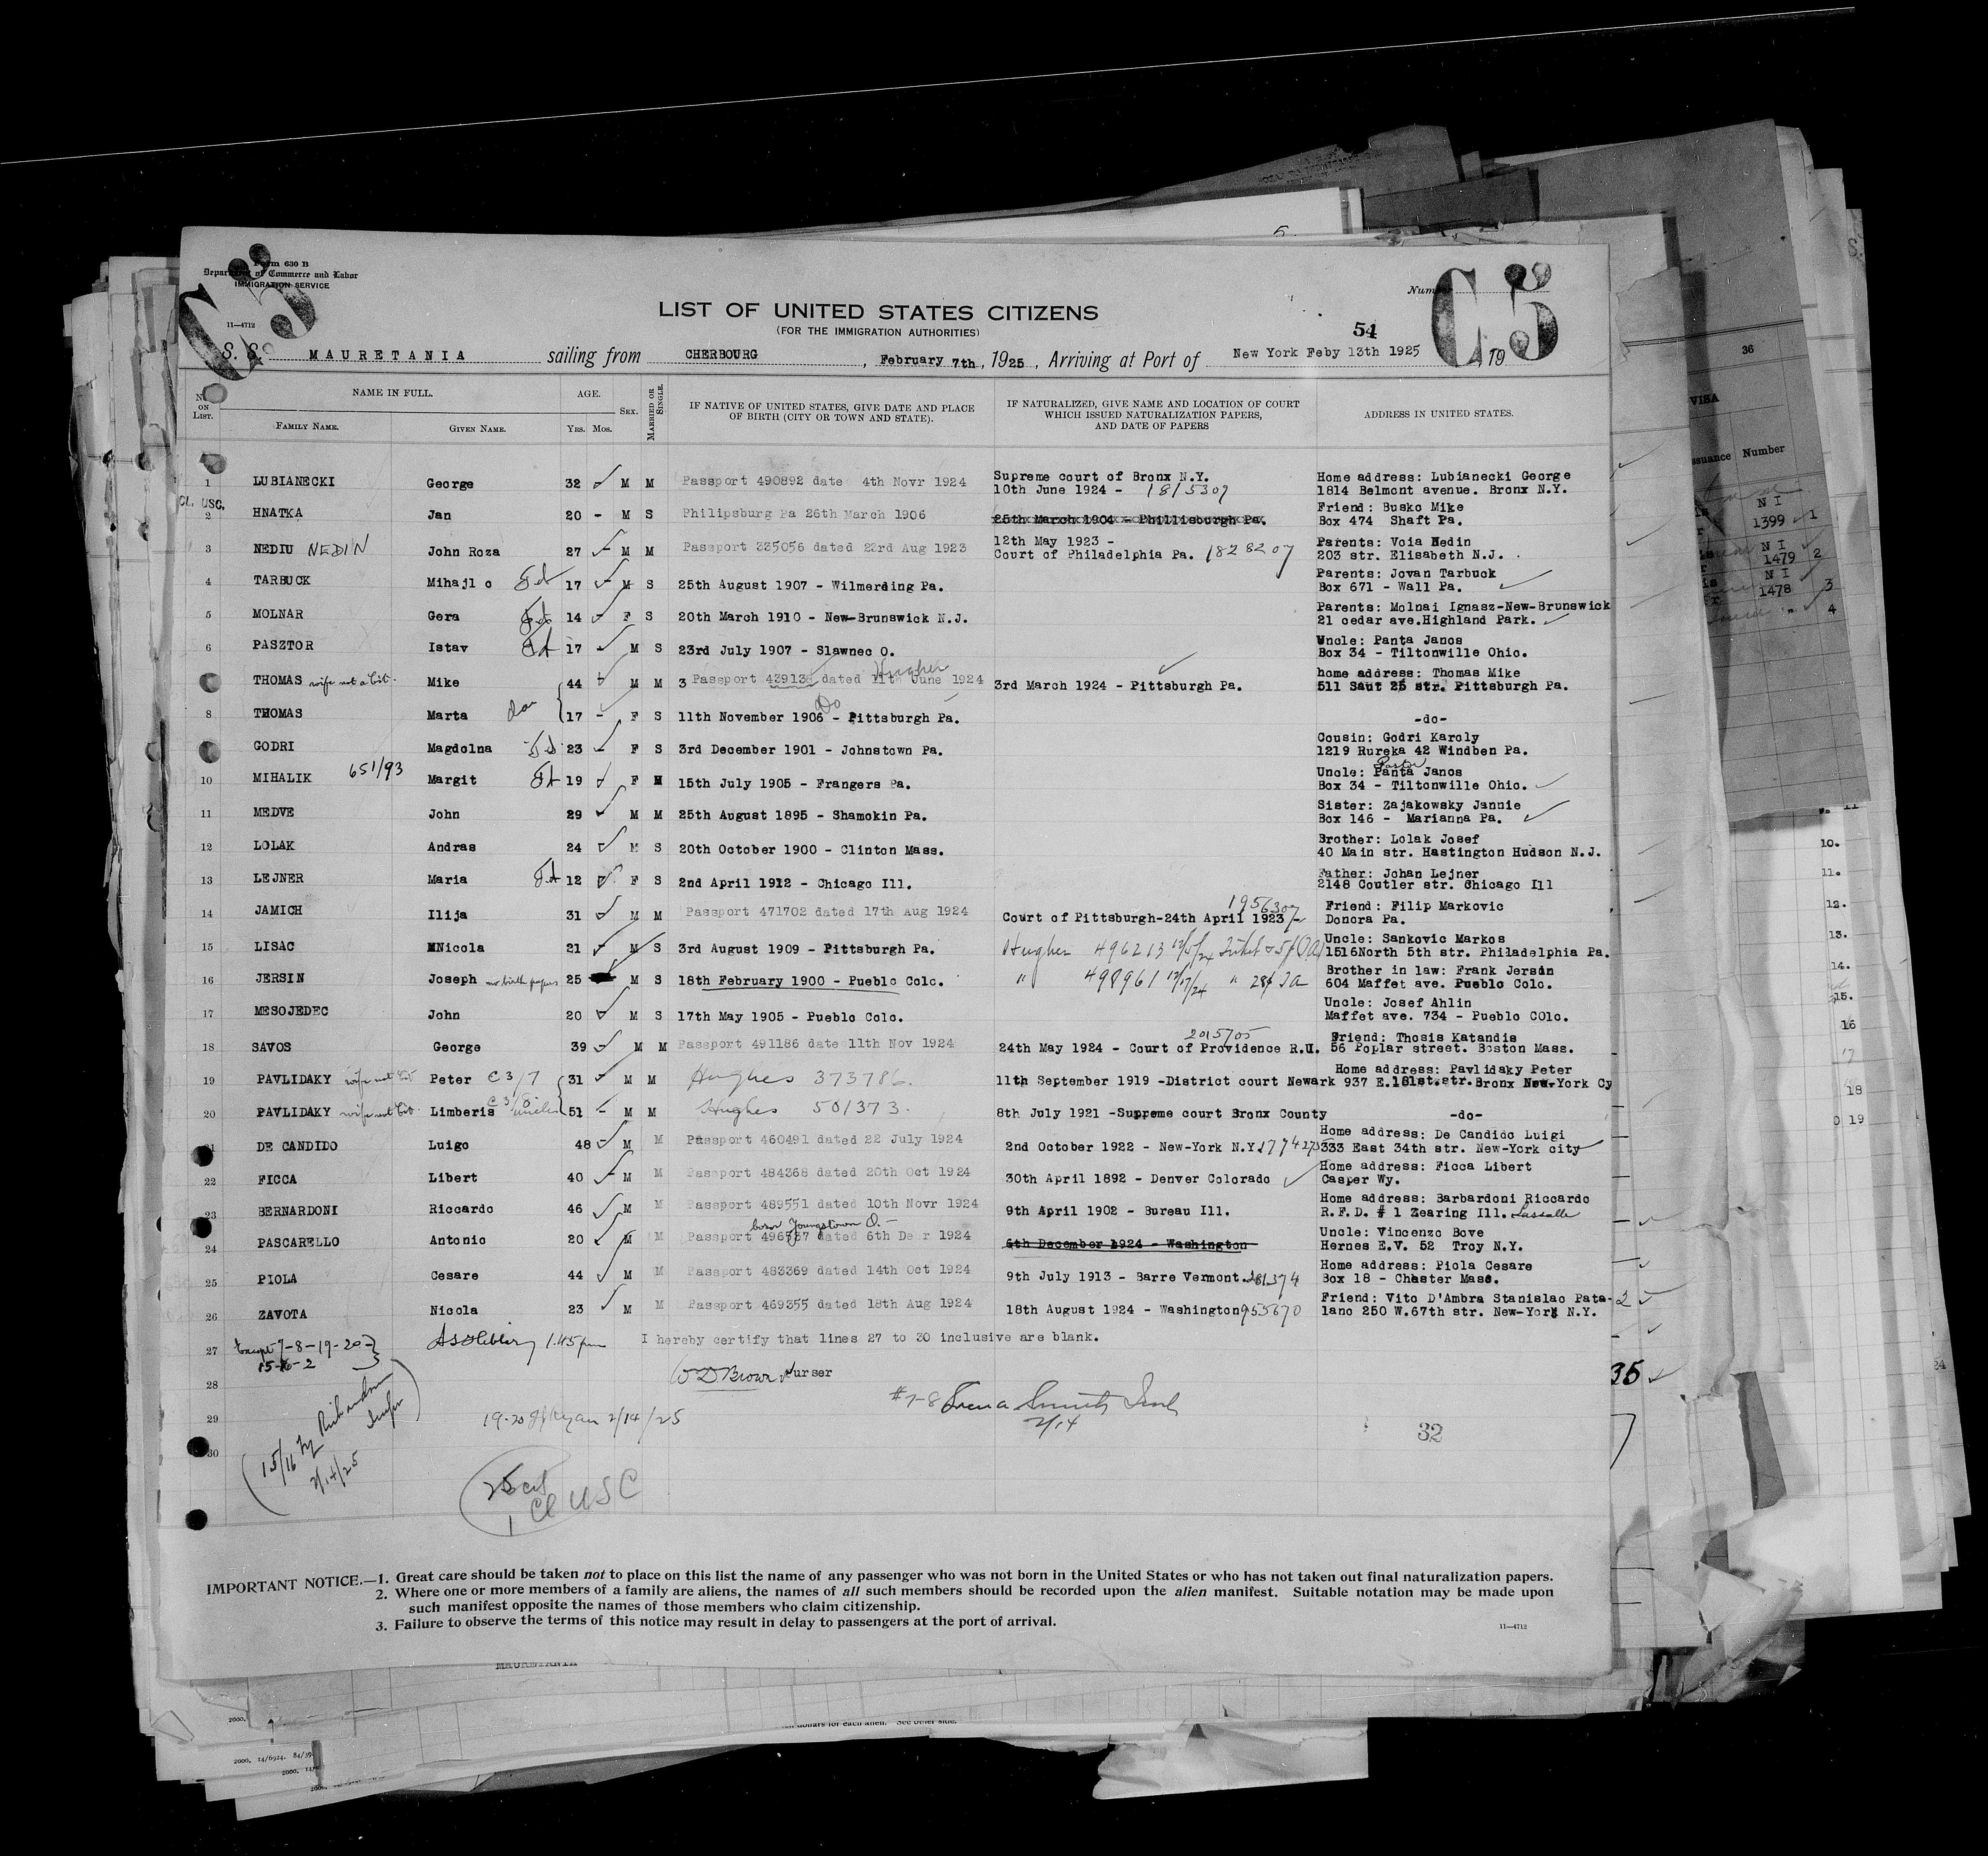 Form 630 B
Department of Commerce and Labor
IMMIGRATION SERVICE
11—4712
C 5
Number
C 5
LIST OF UNITED STATES CITIZENS
(FOR THE IMMIGRATION AUTHORITIES)
54
S. S. MAURETANIA sailing from CHERBOURG, February 7th, 1925, Arriving at Port of New York Feby 13th 1925, 19
No. ON LIST. NAME IN FULL. FAMILY NAME. GIVEN NAME. AGE. Yrs. Mos. SEX. MARRIED OR SINGLE. IF NATIVE OF UNITED STATES, GIVE DATE AND PLACE OF BIRTH (CITY OR TOWN AND STATE). IF NATURALIZED, GIVE NAME AND LOCATION OF COURT WHICH ISSUED NATURALIZATION PAPERS, AND DATE OF PAPERS ADDRESS IN UNITED STATES.
1 LUBIANECKI George 32 M M Passport 490892 date 4th Novr 1924 Supreme court of Bronx N.Y. 10th June 1924 - 1815307 Home address: Lubianecki George 1814 Belmont avenue. Bronx N.Y.
CL. USC.
2 HNATKA Jan 20 - M S Philipsburg Pa 26th March 1906 25th March 1904 - Phillisburgh Pa. Friend: Busko Mike Box 474 Shaft Pa.
3 NEDIU NEDIN John Roza 27 - M M Passport 335056 dated 23rd Aug 1923 12th May 1923 - Court of Philadelphia Pa. 1828207 Parents: Voia Nedin 203 str. Elisabeth N.J.
4 TARBUCK Mihajl o 17 - M S 25th August 1907 - Wilmerding Pa. Parents: Jovan Tarbuck Box 671 - Wall Pa.
5 MOLNAR Gera 14 - F S 20th March 1910 - New-Brunswick N.J. Parents: Molnai Ignasz-New-Brunswick 21 cedar ave.Highland Park.
6 PASZTOR Istav 17 M S 23rd July 1907 - Slawnec O. Uncle: Panta Janos Box 34 - Tiltonwille Ohio.
THOMAS wife not a Cit. Mike 44 M M 3 Passport 439138 dated 11th June 1924 Hughes 3rd March 1924 - Pittsburgh Pa. home address: Thomas Mike 511 Saut 25 str. Pittsburgh Pa.
8 THOMAS Marta 17 - F S 11th November 1906 - Pittsburgh Pa. Do -do-
GODRI Magdolna 23 - F S 3rd December 1901 - Johnstown Pa. Cousin: Godri Karoly 1219 Rureka 42 Windben Pa.
10 MIHALIK 651/93 Margit 19 F M 15th July 1905 - Frangers Pa. Uncle: Panta Janos Box 34 - Tiltonwille Ohio.
11 MEDVE John 29 M M 25th August 1895 - Shamokin Pa. Sister: Zajakowsky Jannie Box 146 - Marianna Pa.
12 LOLAK Andras 24 M S 20th October 1900 - Clinton Mass. Brother: Lolak Josef 40 Main str. Hastington Hudson N.J.
13 LEJNER Maria 12 F S 2nd April 1912 - Chicago Ill. Father: Johan Lejner 2148 Coutler str. Chicago Ill
14 JAMICH Ilija 31 M M Passport 471702 dated 17th Aug 1924 1956307 Court of Pittsburgh-24th April 1923 Friend: Filip Markovic Donora Pa.
15 LISAC MNicola 21 M S 3rd August 1909 - Pittsburgh Pa. Hughes 496213 12/5/24 Uncle: Sankovic Markos 1516North 5th str. Philadelphia Pa.
16 JERSIN Joseph no birth papers 25 M S 18th February 1900 - Pueblo Colo. " 498961 12/17/24 " Brother in law: Frank Jersin 604 Maffet ave. Pueblo Colo.
17 MESOJEDEC John 20 M S 17th May 1905 - Pueblo Colo. Uncle: Josef Ahlin Maffet ave. 734 - Pueblo COlo.
18 SAVOS George 39 M M Passport 491186 date 11th Nov 1924 2015705 24th May 1924 - Court of Providence R.U. Friend: Thosis Katandis 56 Poplar street. Boston Mass.
19 PAVLIDAKY wife not Cit Peter C 3/7 31 M M Hughes 373786. 11th September 1919 -District court Newark Home address: Pavlidaky Peter 937 E.181st.str.Bronx New-York Cy
20 PAVLIDAKY wife not Cit. Limberis C 3/8 uncles 51 - M M Hughes 501373. 8th July 1921 -Supreme court Bronx County -do-
21 DE CANDIDO Luigo 48 M M Passport 460491 dated 22 July 1924 2nd October 1922 - New-York N.Y. Home address: De Candido Luigi 333 East 34th str. New-York city
22 FICCA Libert 40 - M M Passport 484368 dated 20th Oct 1924 30th April 1892 - Denver Colorado Home address: Ficca Libert Casper Wy.
23 BERNARDONI Riccardo 46 M M Passport 489551 dated 10th Novr 1924 9th April 1902 - Bureau Ill. Home address: Barbardoni Riccardo R.F.D. # 1 Zearing Ill. Lassalle
born Youngstown O. -
24 PASCARELLO Antonio 20 M M Passport 496567 dated 6th De r 1924 6th December 1924 - Washington Uncle: Vincenzo Bove Hernes E.V. 52 Troy N.Y.
25 PIOLA Cesare 44 M M Passport 483369 dated 14th Oct 1924 9th July 1913 - Barre Vermont. Home address: Piola Cesare Box 18 - Chester Mass.
26 ZAVOTA Nicola 23 M M Passport 469355 dated 18th Aug 1924 18th August 1924 - Washington 955670 Friend: Vito D'Ambra Stanislao Pata- lano 250 W.67th str. New-York N.Y.
27 Except 7-8-19-20- 15-16-2 1.45 pm I hereby certify that lines 27 to 30 inclusive are blank.
WD Brown Purser
28
#7-8 2/14
29 19-20 Ryan 2/14/25
30
15/16 by Richardson 2/14/25
32
35
25 cit
1 Cl USC
IMPORTANT NOTICE.—1. Great care should be taken not to place on this list the name of any passenger who was not born in the United States or who has not taken out final naturalization papers.
2. Where one or more members of a family are aliens, the names of all such members should be recorded upon the alien manifest. Suitable notation may be made upon
such manifest opposite the names of those members who claim citizenship.
3. Failure to observe the terms of this notice may result in delay to passengers at the port of arrival.
11—4712
MAURETANIA
36
VISA
Number
N I
1399 1
N I
1479 2
N I
1478 3
4
10.
11.
12.
13.
14.
15.
16
17
18
19
24
2000.
2000. 14/6924. 84/39
2000.